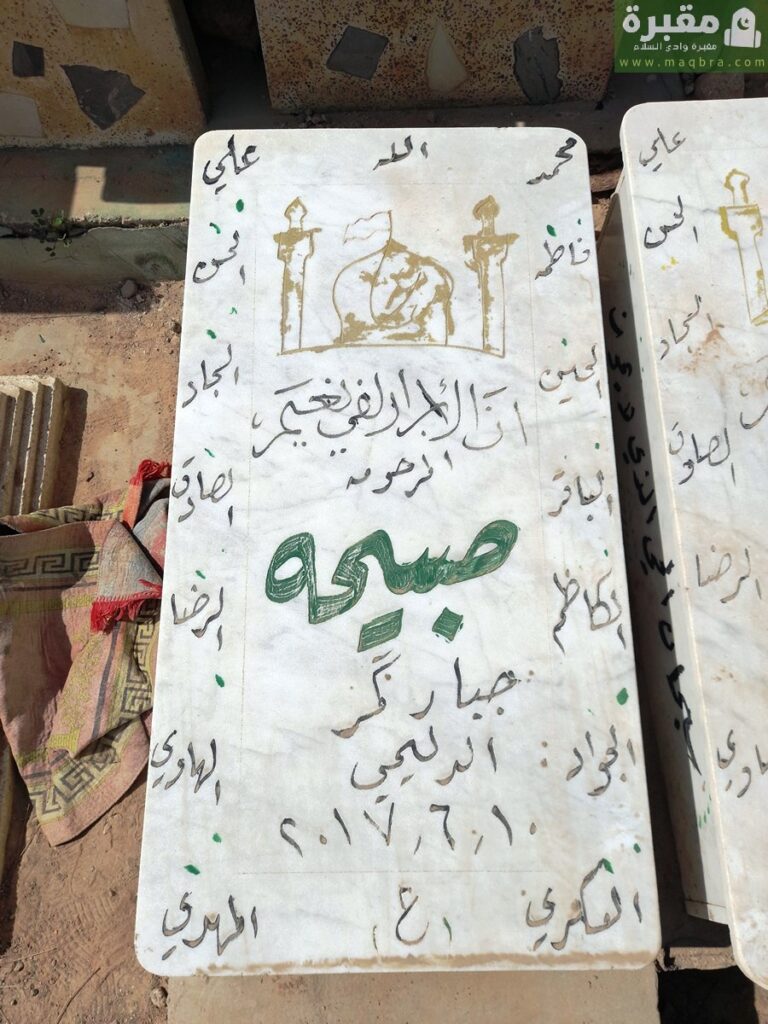 مقبرة
مقبرة وادي السلام
www.maqbra.com
محمد الله علي
فاطمه الحسن
الحسين السجاد
الباقر الصادق
الكاظم الرضا
الجواد الهادي
العسكري (ع) المهدي
ان الأبرار لفي نعيم
المرحومه
صبيحه
جبار
الدليمي
٢٠١٧٫٦٫١٠
علي
الحسن
السجاد
الصادق
الرضا
الهادي